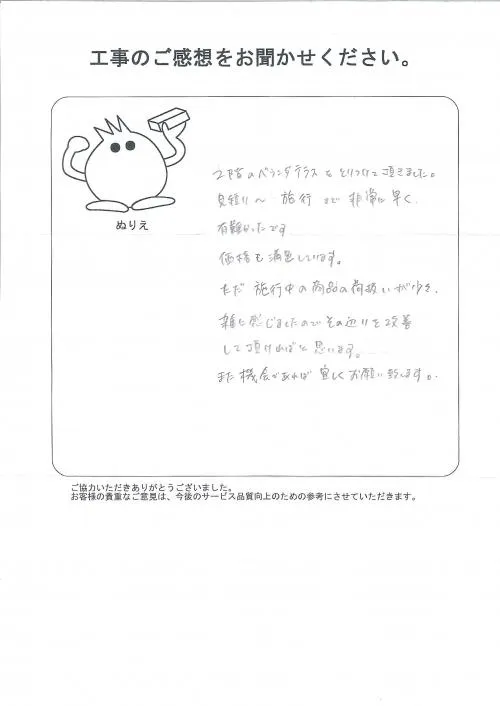 工事のご感想をお聞かせください。
ぬりえ
2階のベランダテラスをとりつけて頂きました。
見積り〜施行まで非常に早く、
有難かったです
価格も満足しています。
ただ施行中の商品の荷扱いが少々、
雑に感じましたのでその辺りを改善
して頂ければと思います。
また機会があれば宜しくお願い致します。
ご協力いただきありがとうございました。
お客様の貴重なご意見は、今後のサービス品質向上のための参考にさせていただきます。